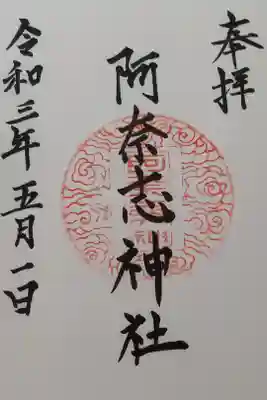 奉拝
阿奈志神社
令和三年五月一日